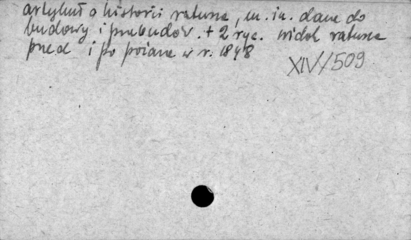 artykuł o historii ratusza, m.in. dane do
budowy i przebudów. + 2 ryc. widok ratusza
przed i po pożarze w r. 1848
XIV/509